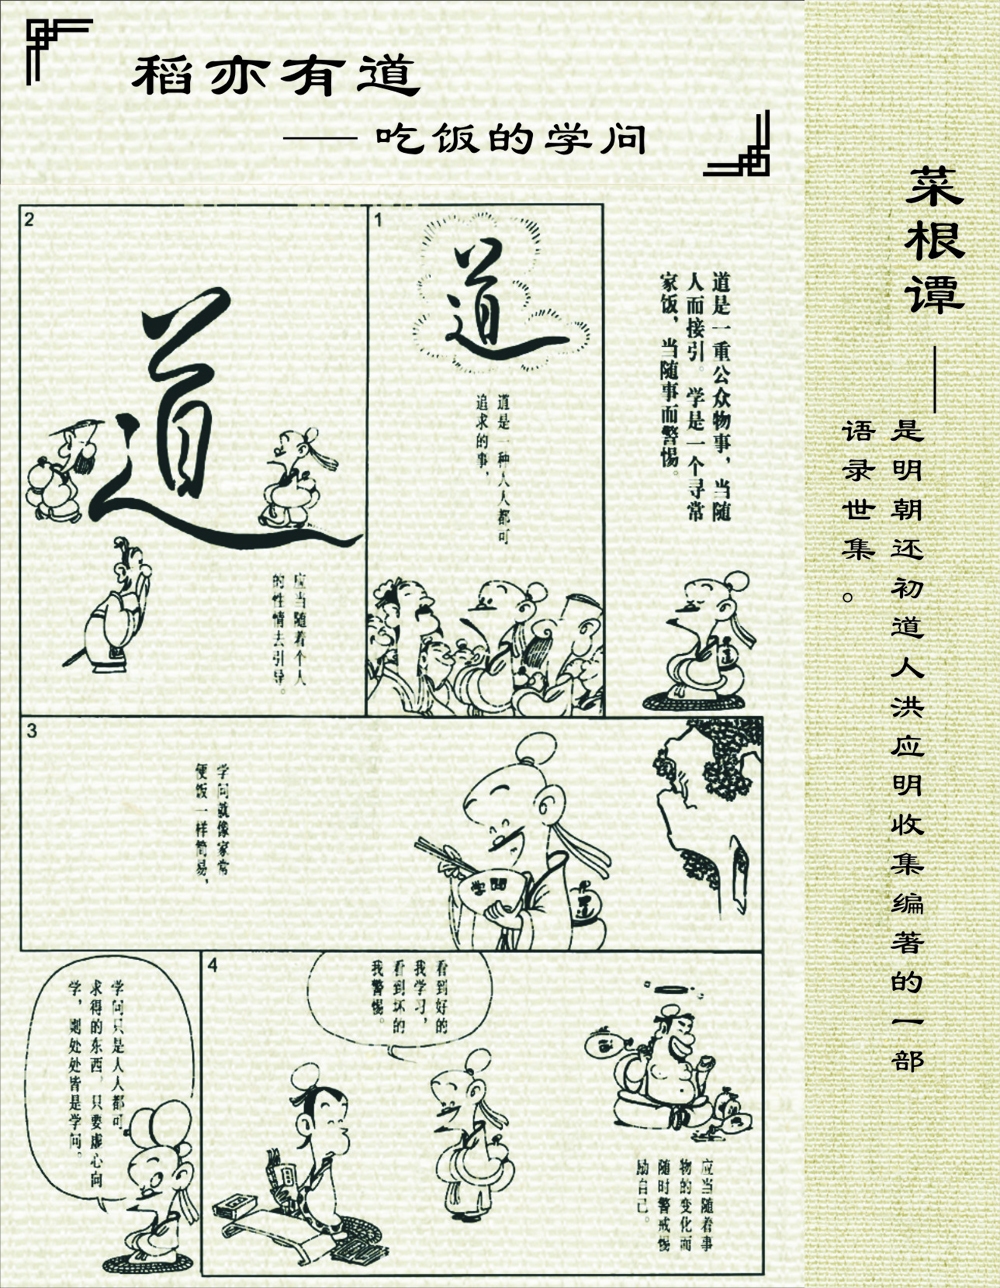 稻亦有道
—— 吃饭的学问
菜根谭 ——
是明朝还初道人洪应明收集编著的一部
语录世集。
道是一重公众物事，当随
人而接引。学是一个寻常
家饭，当随事而警惕。
1
道
道是一种人人都可
追求的事，
2
道
应当随着个人
的性情去引导。
3
学问就像家常
便饭一样简易，
学问
道
4
应当随着事
物的变化而
随时警戒惕
励自己。
看到好的
我学习，
看到坏的
我警惕。
学问只是人人都可
求得的东西，只要虚心向
学，则处处皆是学问。